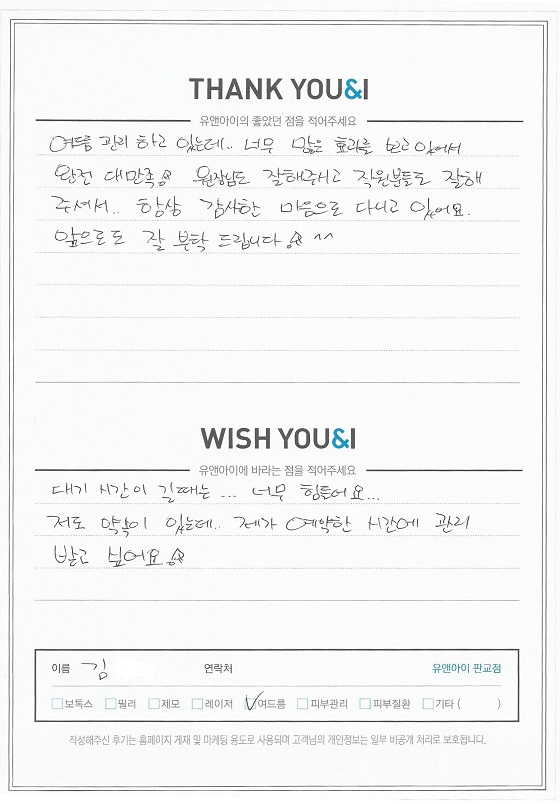 THANK YOU&I
유앤아이의 좋았던 점을 적어주세요
여드름 관리 하고 있는데.. 너무 많은 효과를 보고 있어서
완전 대만족☆ 원장님도 잘해주시고 직원분들도 잘해
주셔서.. 항상 감사한 마음으로 다니고 있어요.
앞으로도 잘 부탁 드립니다☆ ^^
WISH YOU&I
유앤아이에 바라는 점을 적어주세요
대기 시간이 길때는... 너무 힘들어요...
저도 약속이 있는데.. 제가 예약한 시간에 관리
받고 싶어요☆
이름 김 연락처 유앤아이 판교점
보톡스 필러 제모 레이저 여드름 피부관리 피부질환 기타 ( )
작성해주신 후기는 홈페이지 게재 및 마케팅 용도로 사용되며 고객님의 개인정보는 일부 비공개 처리로 보호됩니다.